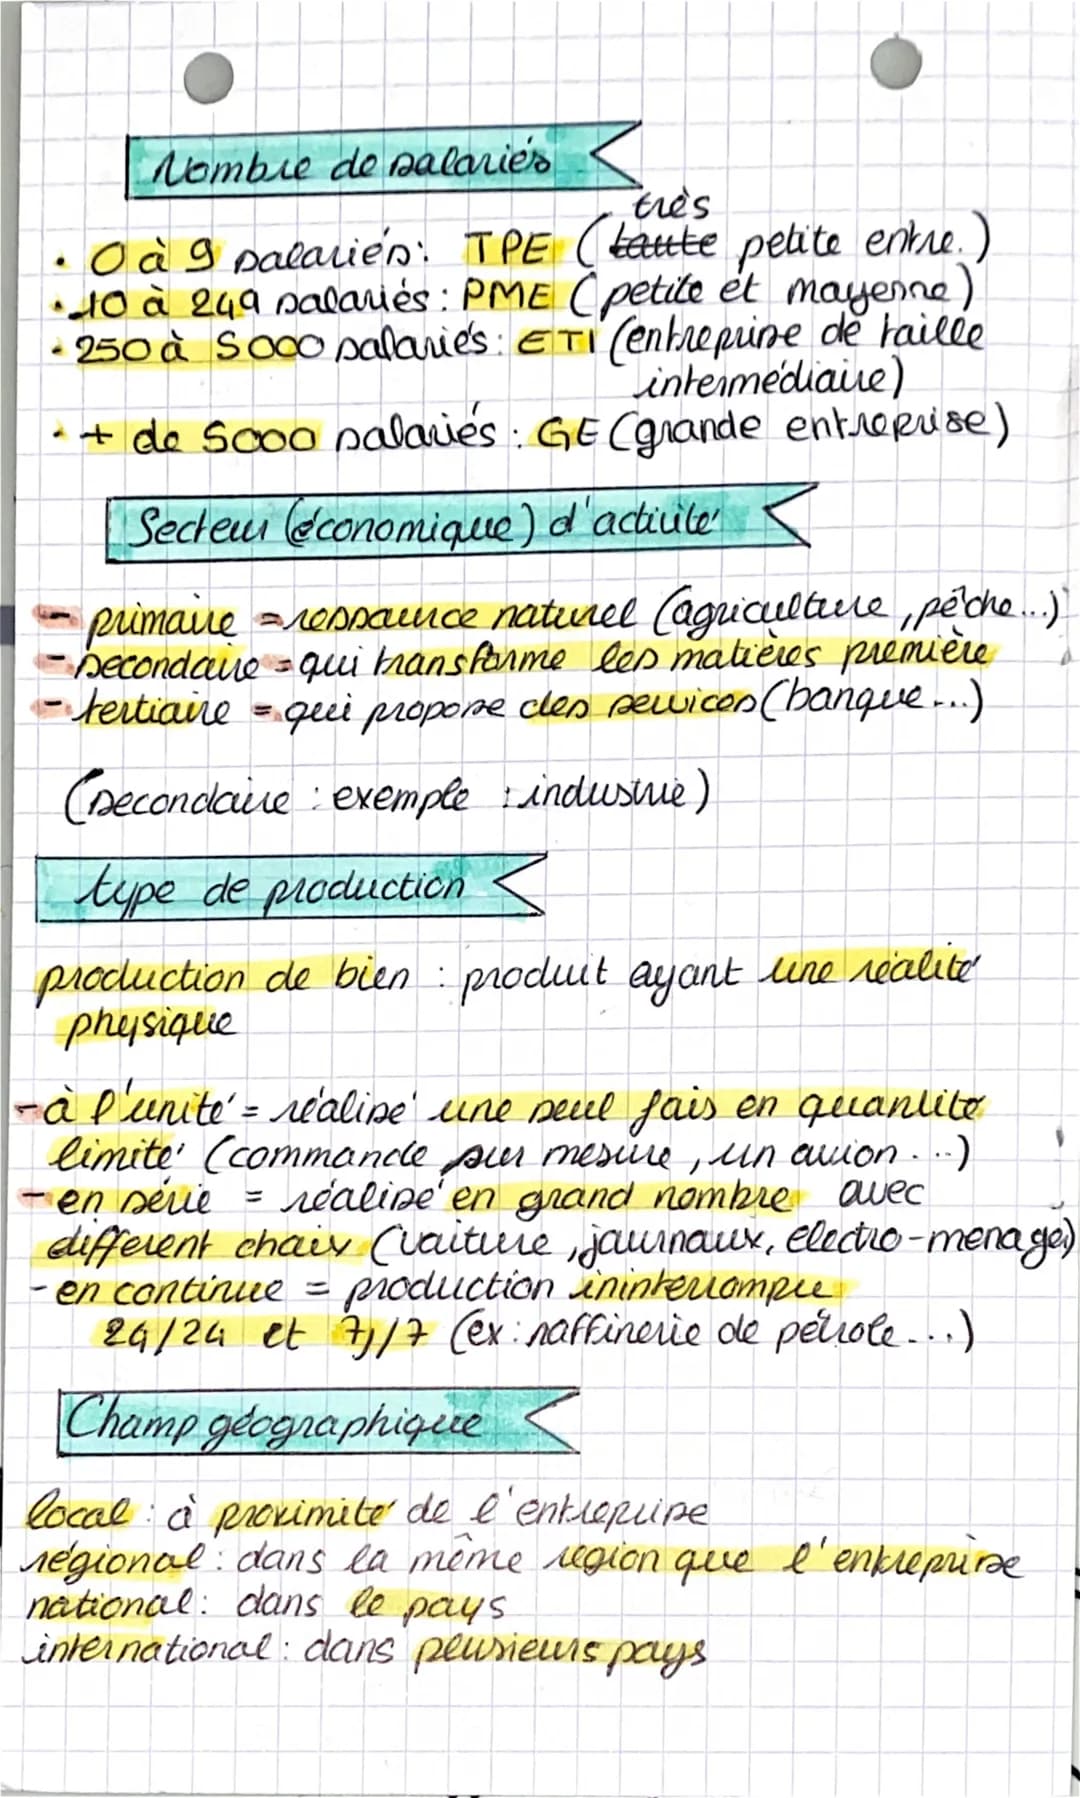 Nombre de salariés
très
• 0 à 9 salariés: TPE (toute petite entre.)
• 10 à 249 salariés : PME (petite et moyenne)
• 250 à 5000 salariés : ETI (entreprise de taille
intermédiaire)
• + de 5000 salariés : GE (grande entreprise)
Secteur (économique) d'activité
- primaire = ressource naturel (agriculture, pêche...)
- secondaire = qui transforme les matières première
- tertiaire = qui propose des services (banque...)
(secondaire : exemple : industrie)
type de production
production de bien : produit ayant une réalité
physique
- à l'unité = réalisé une seul fois en quantité
limité (commande sur mesure, un avion...)
- en série = réalisé en grand nombre avec
different choix (voiture, journaux, électro-menager)
- en continue = production ininterrompue
24/24 et 7j/7 (ex : raffinerie de pétrole...)
Champ géographique
local : à proximité de l'entreprise
régional : dans la même region que l'entreprise
national : dans le pays
international : dans plusieurs pays